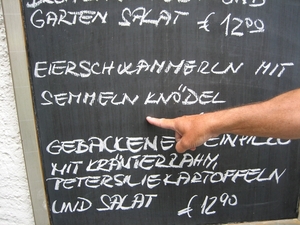 UND
GARTEN SALAT € 12.00
EIERSCHWAMMERLN MIT
SEMMELN KNÖDEL
GEBACKENE
MIT KRÄUTERRAHM,
PETERSILIEKARTOFFELN
UND SALAT € 12.90